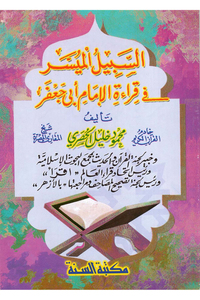 السبيل الميسر
في قراءة الإمام أبي جعفر
تأليف
خادم القرآن الكريم
محمود خليل الحصري
شيخ المقارئ المصرية
وخبير لجنة القرآن والحديث بمجمع البحوث الإسلامية
ورئيس اتحاد قراء العالم "اقرأ"
ورئيس لجنة تصحيح المصاحف ومراجعتها بالأزهر
مكتبة السنة